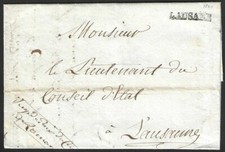 LAUSANNE
Monsieur
le Lieutenant du
Conseil d'Etat
à Lausanne